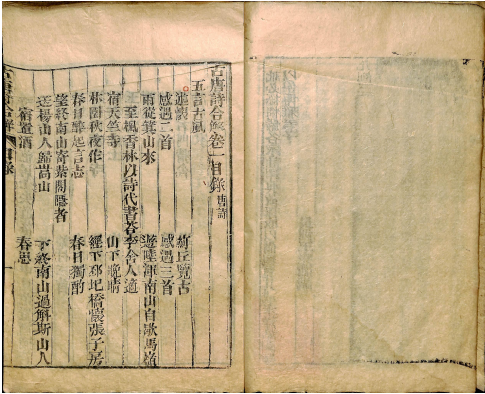 古唐詩合解卷一目錄 唐詩
五言古風
述懷 薊丘覽古
感遇二首 感遇三首
雨從箕山來 遊陸渾南山自歌馬嶺
至楓香林以詩代書答李舍人適
宿天竺寺 山下晚晴
林園秋夜作 經下邳圯橋懷張子房
春日醉起言志 春日獨酌
望終南山寄紫閣隱者
送楊山人歸嵩山 下終南山過斛斯山人
宿置酒 春思
古唐詩合解 目錄